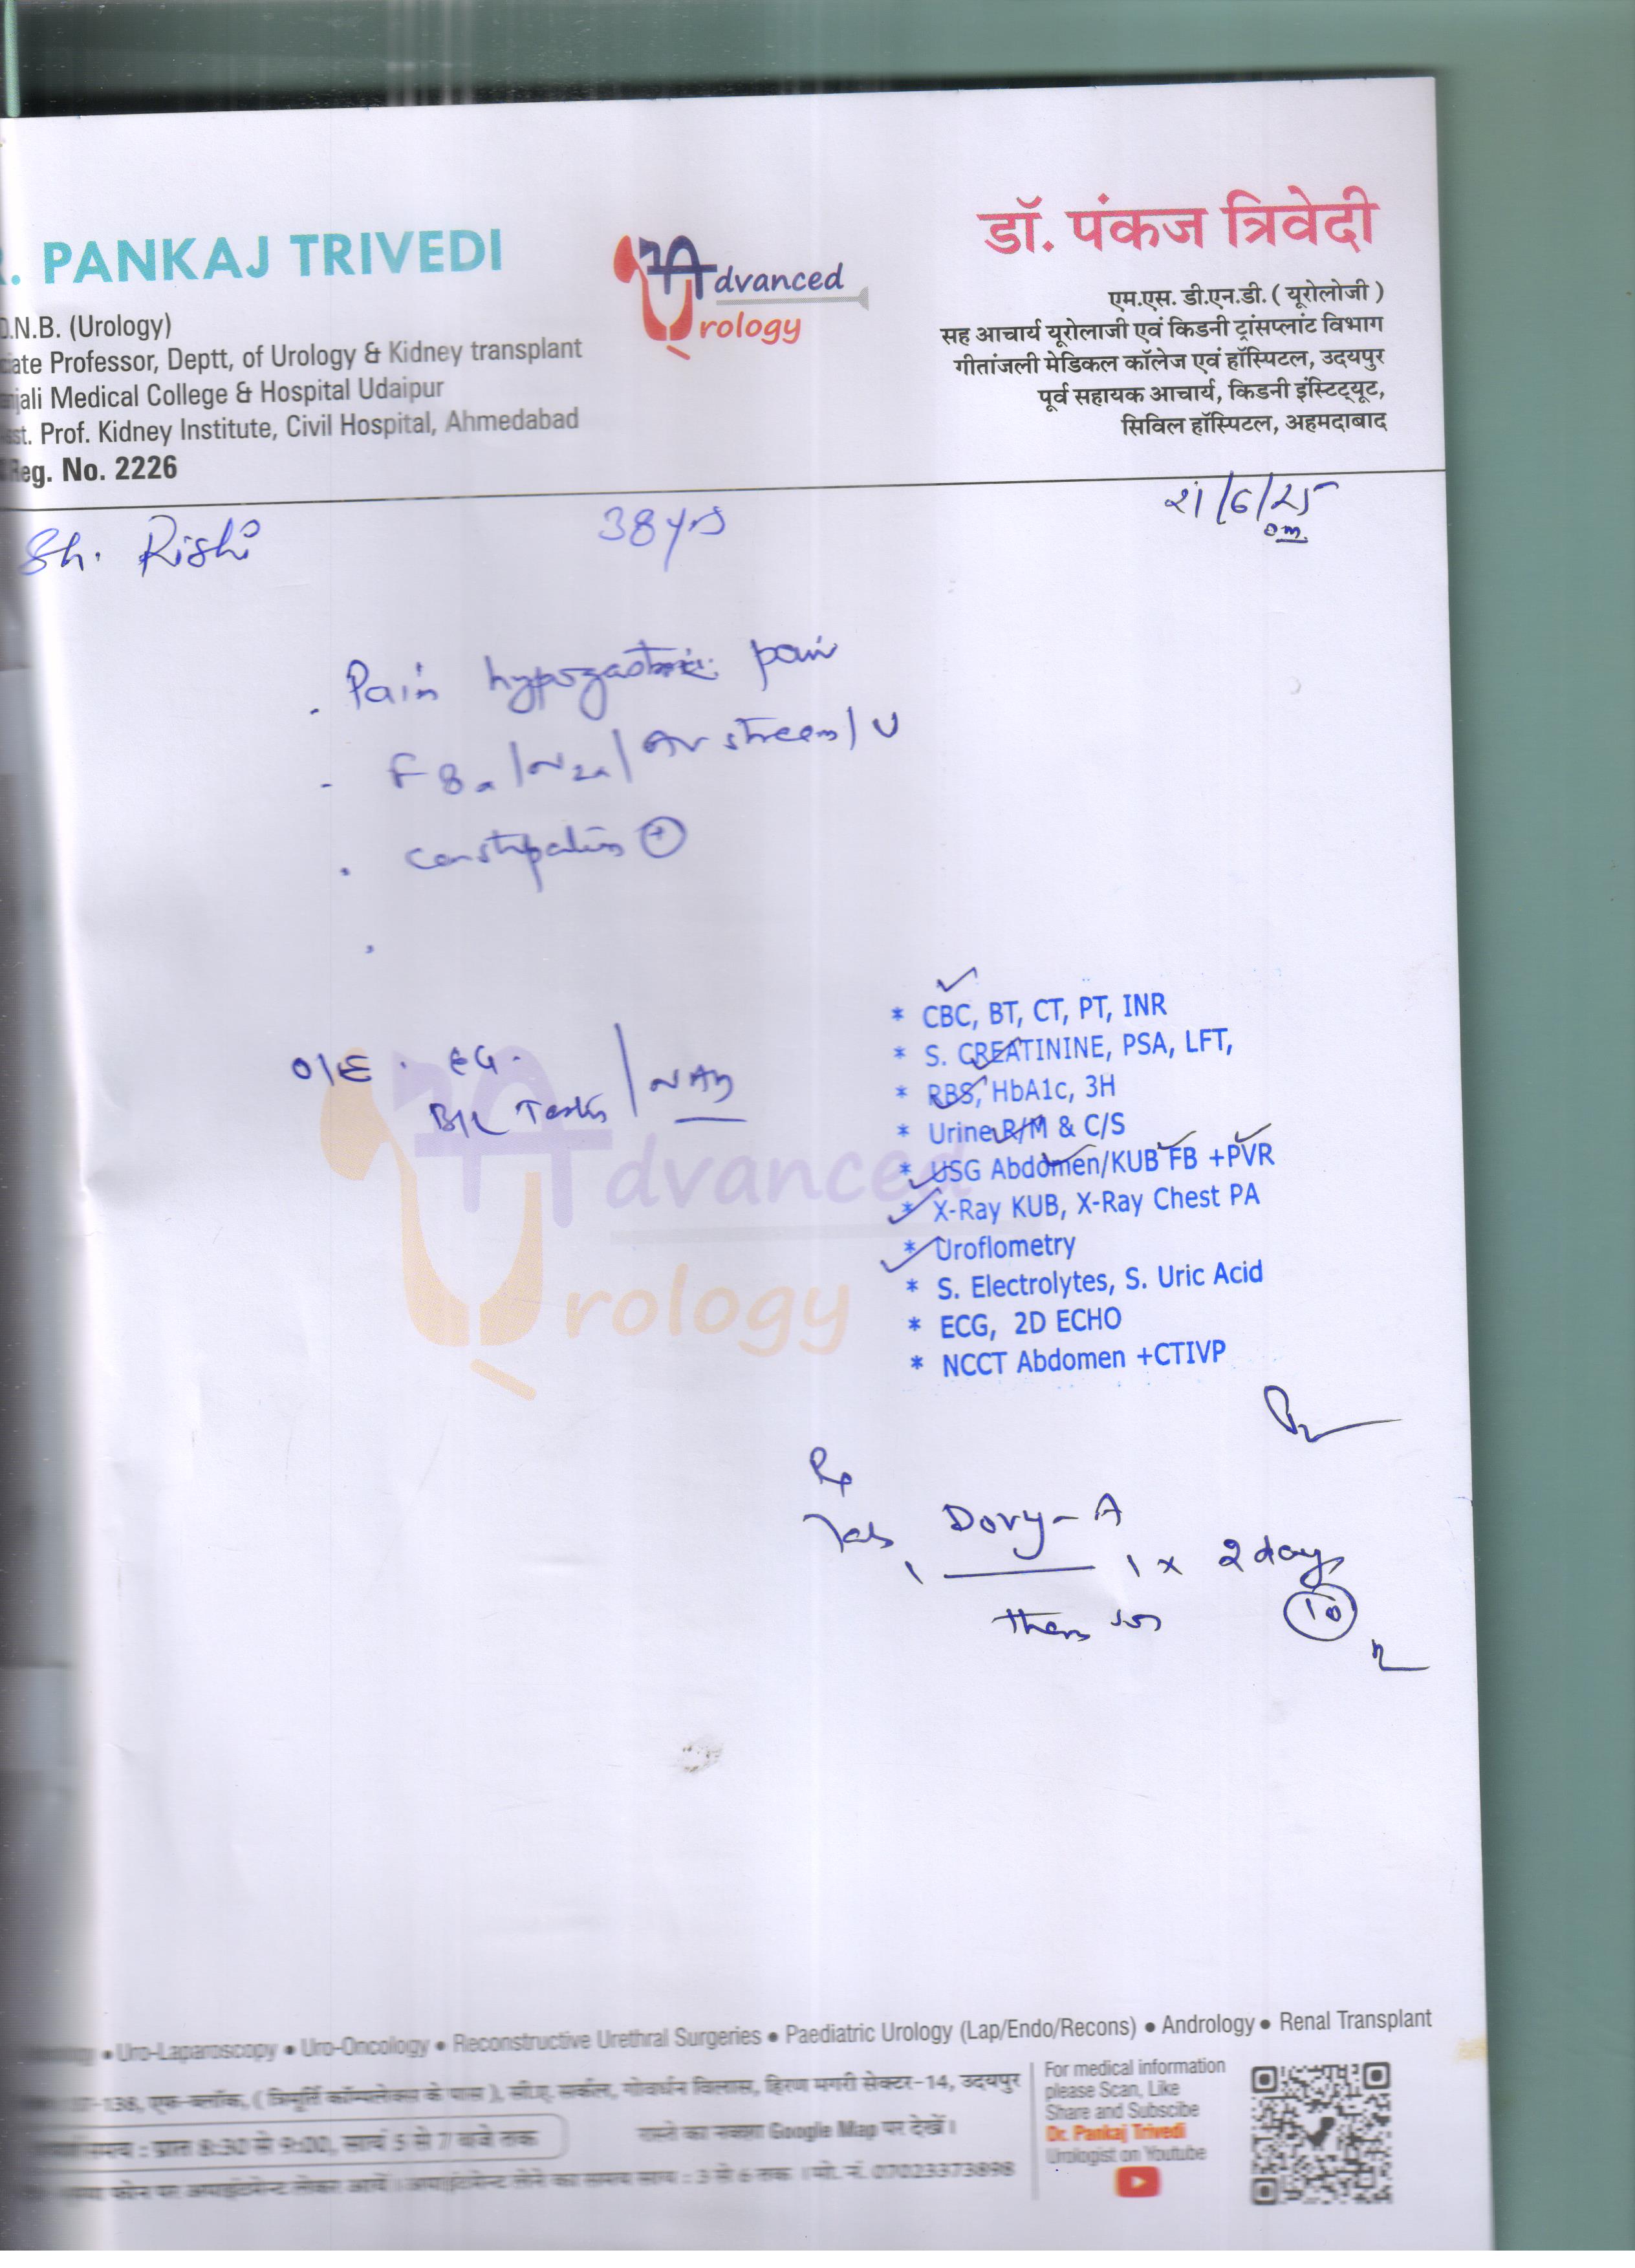 . PANKAJ TRIVEDI
D.N.B. (Urology)
ciate Professor, Deptt, of Urology & Kidney transplant
njali Medical College & Hospital Udaipur
sst. Prof. Kidney Institute, Civil Hospital, Ahmedabad
Reg. No. 2226
Advanced
Urology
डॉ. पंकज त्रिवेदी
एम.एस. डी.एन.डी. ( यूरोलोजी )
सह आचार्य यूरोलाजी एवं किडनी ट्रांसप्लांट विभाग
गीतांजली मेडिकल कॉलेज एवं हॉस्पिटल, उदयपुर
पूर्व सहायक आचार्य, किडनी इंस्टिट्यूट,
सिविल हॉस्पिटल, अहमदाबाद
Sh. Rishi 38 yrs 21/6/25
. Pain hypogastric pain
- F8-/N2x/Av stream/U
. constipation +
O/E . EG.
B/L Testis / NAD
* CBC, BT, CT, PT, INR
* S. CREATININE, PSA, LFT,
* RBS, HbA1c, 3H
* Urine R/M & C/S
* USG Abdomen/KUB FB +PVR
* X-Ray KUB, X-Ray Chest PA
* Uroflometry
* S. Electrolytes, S. Uric Acid
* ECG, 2D ECHO
* NCCT Abdomen +CTIVP
Advanced
Urology
Rx
Tab Dovy-A
1 1 x 2 days
then sos 10
• Uro-Laparoscopy • Uro-Oncology • Reconstructive Urethral Surgeries • Paediatric Urology (Lap/Endo/Recons) • Andrology • Renal Transplant
-138, एफ-ब्लॉक, ( त्रिमूर्ति कॉम्पलेक्स के पास ), सी.ए. सर्कल, गोवर्धन विलास, हिरण मगरी सेक्टर-14, उदयपुर
समय : प्रात 8:30 से 9:00, सायं 5 से 7 बजे तक
रास्ते का नक्शा Google Map पर देखें।
फोन पर अपाईंटमेन्ट लेकर आवें। अपाईंटमेन्ट लेने का समय सायं : 3 से 6 तक । मो. नं. 07023373898
For medical information
please Scan, Like
Share and Subscibe
Dr. Pankaj Trivedi
Urologist on Youtube